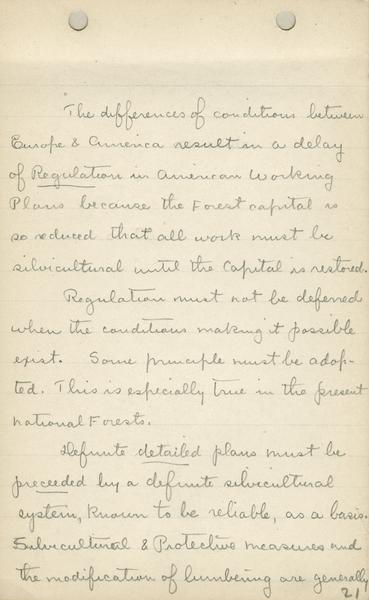 The differences of conditions between
Europe & America result in a delay
of Regulation in American Working
Plans because the Forest capital is
so reduced that all work must be
silvicultural until the Capital is restored.
Regulation must not be deferred
when the conditions making it possible
exist. Some principle must be adop-
ted. This is especially true in the present
National Forests.
Definite detailed plans must be
preceeded by a definite silvicultural
system, known to be reliable, as a basis.
Silvicultural & Protective measures and
the modification of lumbering are generally
21